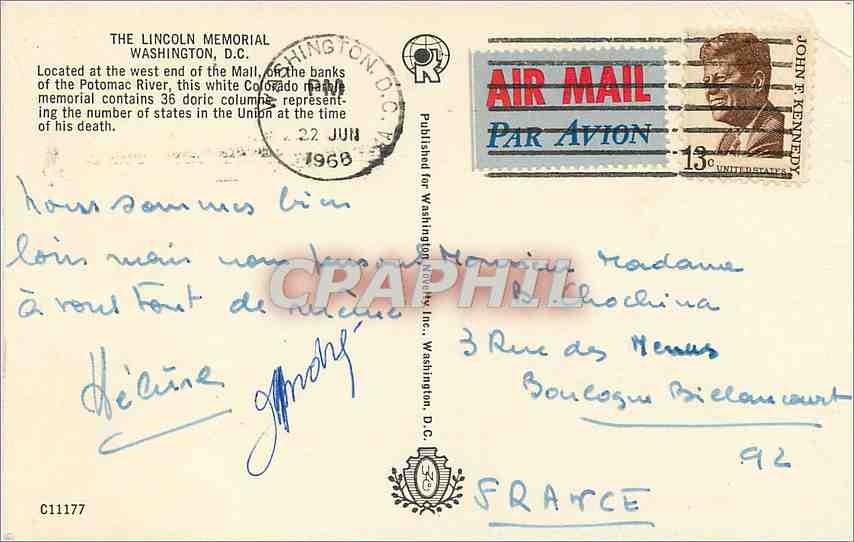 THE LINCOLN MEMORIAL
WASHINGTON, D.C.
Located at the west end of the Mall, on the banks
of the Potomac River, this white Colorado marble
memorial contains 36 doric columns, represent-
ing the number of states in the Union at the time
of his death.
WASHINGTON, D.C.
PM
22 JUN
1968
AIR MAIL
PAR AVION
JOHN F. KENNEDY
13c
UNITED STATES
Published for Washington Novelty Inc., Washington, D.C.
Nous sommes bien
loin mais nous pensons
à vous tout de même
Hélène
André
CPAPHIL
Monsieur Madame
B. Chochina
3 Rue des Menus
Boulogne Billancourt
92
FRANCE
C11177